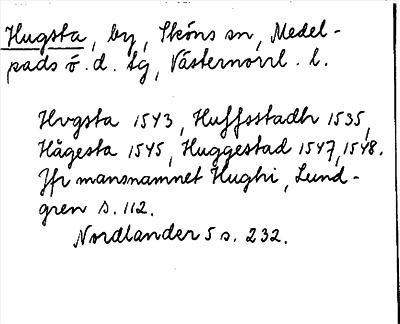 Hugsta, by, Sköns sn, Medel-
pads ö. d. tg, Västernorrl. l.
Hvgsta 1543, Huffsstadh 1535,
Hågesta 1545, Huggestad 1547, 1548.
Jfr mansnamnet Hughi, Lund-
gren s. 112.
Nordlander 5 s. 232.